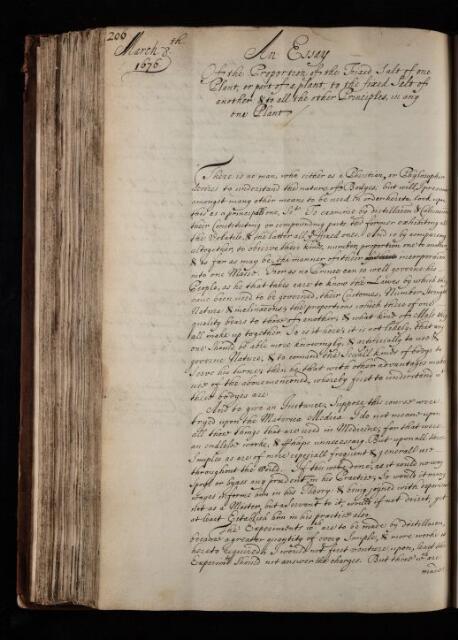 206
March 8th.
1676
An Essay
Of the Proportion, of the Fixed Salt of one
Plant, or part of a plant, to the fixed Salt of
another & to all the other Principles, in any
one Plant
There is no man, who either as a Phisitian, or Phylosopher
desires to understand the nature of Bodyes, but will
amongst many other means to be used in order look upon
this as a principall one, To examine by distillation & Calcination
their Constituting or compounding parts the former exhibiting all
the Volatile, & the latter all fixed ones. And so by comparing
altogether, to observe their kinds, number, proportion one to another
& as far as may be, the manner of their incorporation
into one Masse. For as no Prince can so well governe his
People, as he that takes care to know the Lawes by which they
have been used to be governed, their Customes, Number, Strength
Nature & inclinations, the proportions which those of one
quality beare to those of another, & what kind of Mass they
all make up together So is it here; it is not likely, that any
one should be able more knowingly, & artificially to use &
governe Nature, & to comand the Severall kinds of bodys to
serve his turne, then he that with other advantages makes
use of the abovementioned, whereby first to understand wt
these bodyes are
And to give an Instance, Suppose this course were
tryed upon the Materia Medica I do not mean upon
all those things that are used in Medicine; for that were
an endlesse worke, & perhaps unnecessary. But upon all those
Simples as are of more especiall frequent & generall use
throughout the World. If this were done; as it would no way
spoyl or bypass any prudent in his Practice; So would it
informe him in his Theory: & being joyned with experience
not as a Master, but a Servant to it; would if not direct, yet
at least Establish him in his practice also.
The Experiments wch are to be made by distillation,
because a greater quantity of every Simple, & more worke is
hereto required; I would not first venture upon, least the
Experiment should not answer the charges. But those wch are
made